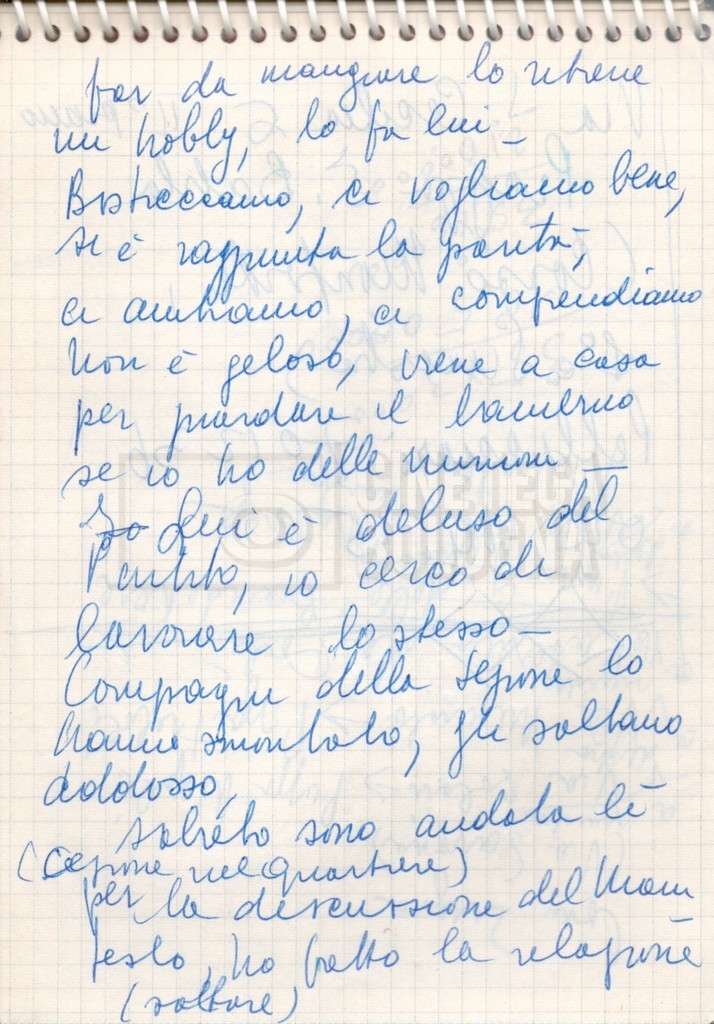 far da mangiare lo ritiene
un hobby, lo fa lui –
Bisticciamo, ci vogliamo bene,
si è raggiunta la parità,
ci aiutiamo, ci compendiamo
Non è geloso, viene a casa
per guardare il bambino
se io ho delle riunioni –
Io Lui è deluso del
Partito, io cerco di
lavorare lo stesso –
Compagni della sezione lo
hanno smontato, gli saltano
addosso,
sabato sono andata lì
(sezione nel quartiere)
per la discussione del Mani
festo, ho fatto la relazione
CINETECA
BOLOGNA